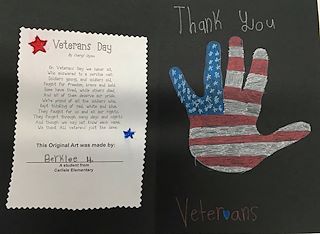 Veterans Day
By Cheryl Dyson
On Veterans Day we honor all,
Who answered to a service call.
Soldiers young, and soldiers old,
Fought for freedom, brave and bold.
Some have lived, while others died,
And all of them deserve our pride.
We're proud of all the soldiers who,
Kept thinking of red, white and blue.
They fought for us and all our rights,
They fought through many days and nights.
And though we may not know each name,
We thank ALL veterans just the same.
This Original Art was made by:
Berklee H.
A student from
Carlisle Elementary
Thank You
Veterans